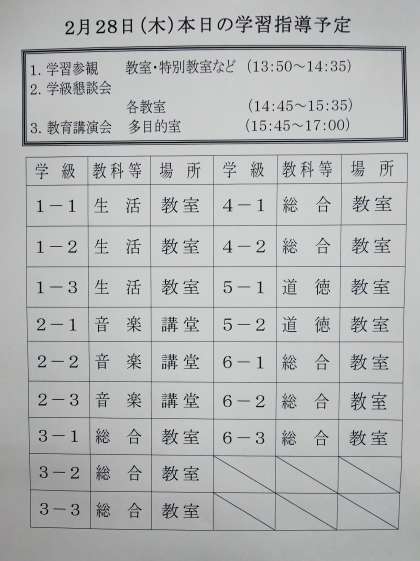 2月28日(木)本日の学習指導予定
1. 学習参観 教室・特別教室など (13:50～14:35)
2. 学級懇談会
各教室 (14:45～15:35)
3. 教育講演会 多目的室 (15:45～17:00)
学 級 教科等 場 所 学 級 教科等 場 所
1－1 生 活 教室 4－1 総 合 教室
1－2 生 活 教室 4－2 総 合 教室
1－3 生 活 教室 5－1 道 徳 教室
2－1 音 楽 講堂 5－2 道 徳 教室
2－2 音 楽 講堂 6－1 総 合 教室
2－3 音 楽 講堂 6－2 総 合 教室
3－1 総 合 教室 6－3 総 合 教室
3－2 総 合 教室
3－3 総 合 教室